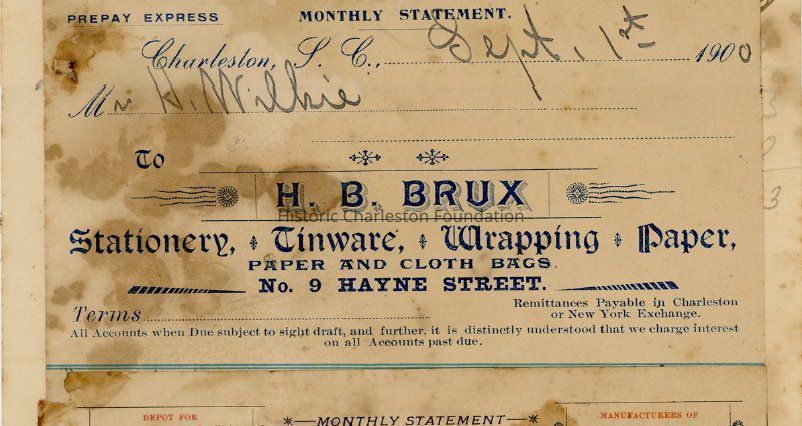 PREPAY EXPRESS
MONTHLY STATEMENT.
Charleston, S. C., Sept. 1st 1900
Mr H. Wilkie
To
H. B. BRUX
Historic Charleston Foundation
Stationery, Tinware, Wrapping Paper,
PAPER AND CLOTH BAGS.
No. 9 HAYNE STREET.
Terms
Remittances Payable in Charleston
or New York Exchange.
All Accounts when Due subject to sight draft, and further, it is distinctly understood that we charge interest
on all Accounts past due.
DEPOT FOR
MONTHLY STATEMENT
MANUFACTURERS OF